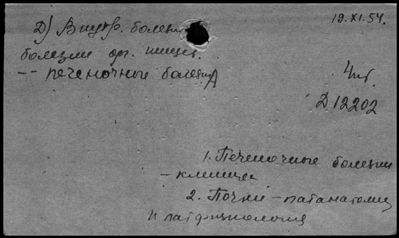 19.XI.54.
Д) Внутр. болезни
болезни орг. пищев.
-- печеночные болезни
4шт
Д 12202
1. Печеночные болезни
- клиника
2. Почки - патанатомия
и патфизиология